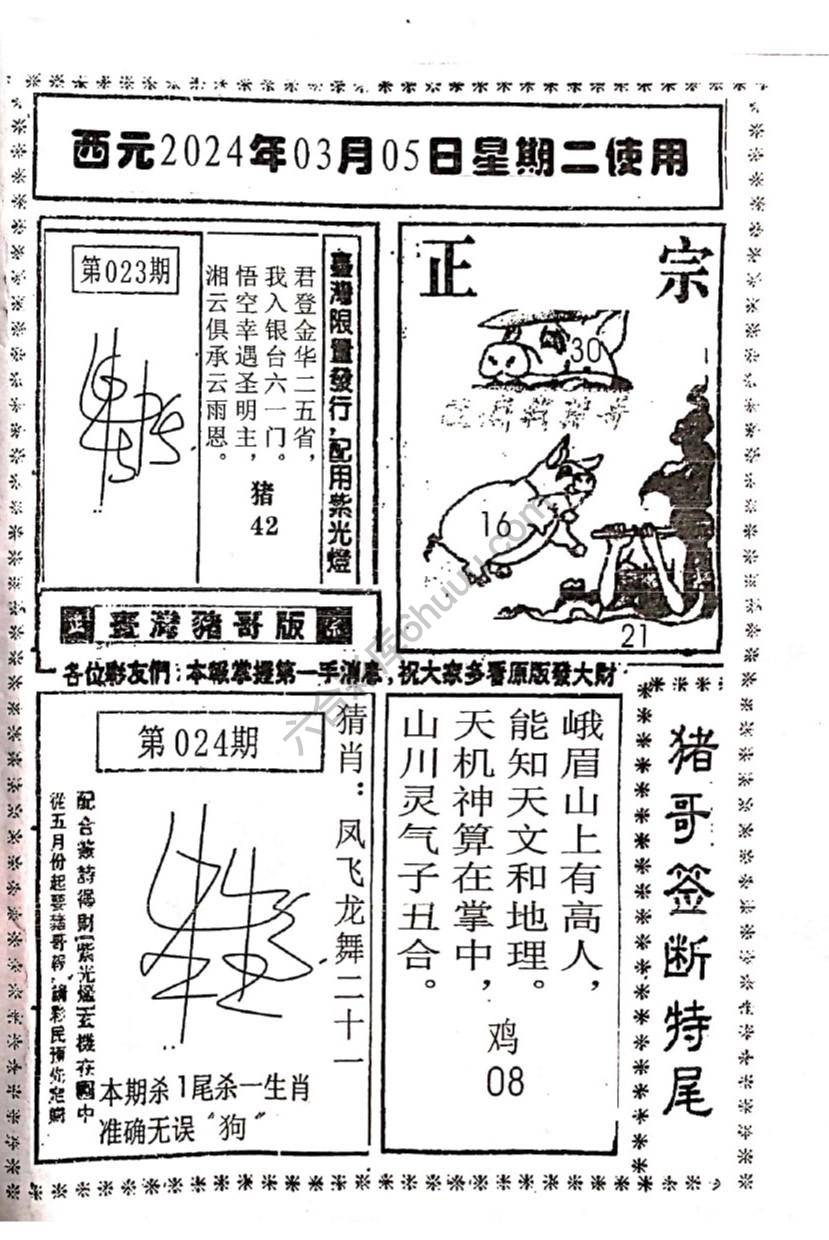 西元2024年03月05日星期二使用
第023期
臺灣限量發行，配用紫光燈
君登金华二五省，
我入银台六一门。
悟空幸遇圣明主，
湘云俱承云雨恩。
猪
42
正宗
30
16
21
臺灣豬哥版
各位彩友們：本報掌握第一手消息，祝大家多看原版發大財
第024期
猜肖：凤飞龙舞二十一
配合簽詩得財紫光燈玄機在圖中
從五月份起要豬哥報，請彩民預先定購
本期杀1尾杀一生肖
准确无误“狗”
峨眉山上有高人，
能知天文和地理。
天机神算在掌中，
山川灵气子丑合。
鸡
08
猪哥签断特尾
六合彩库6huu.com